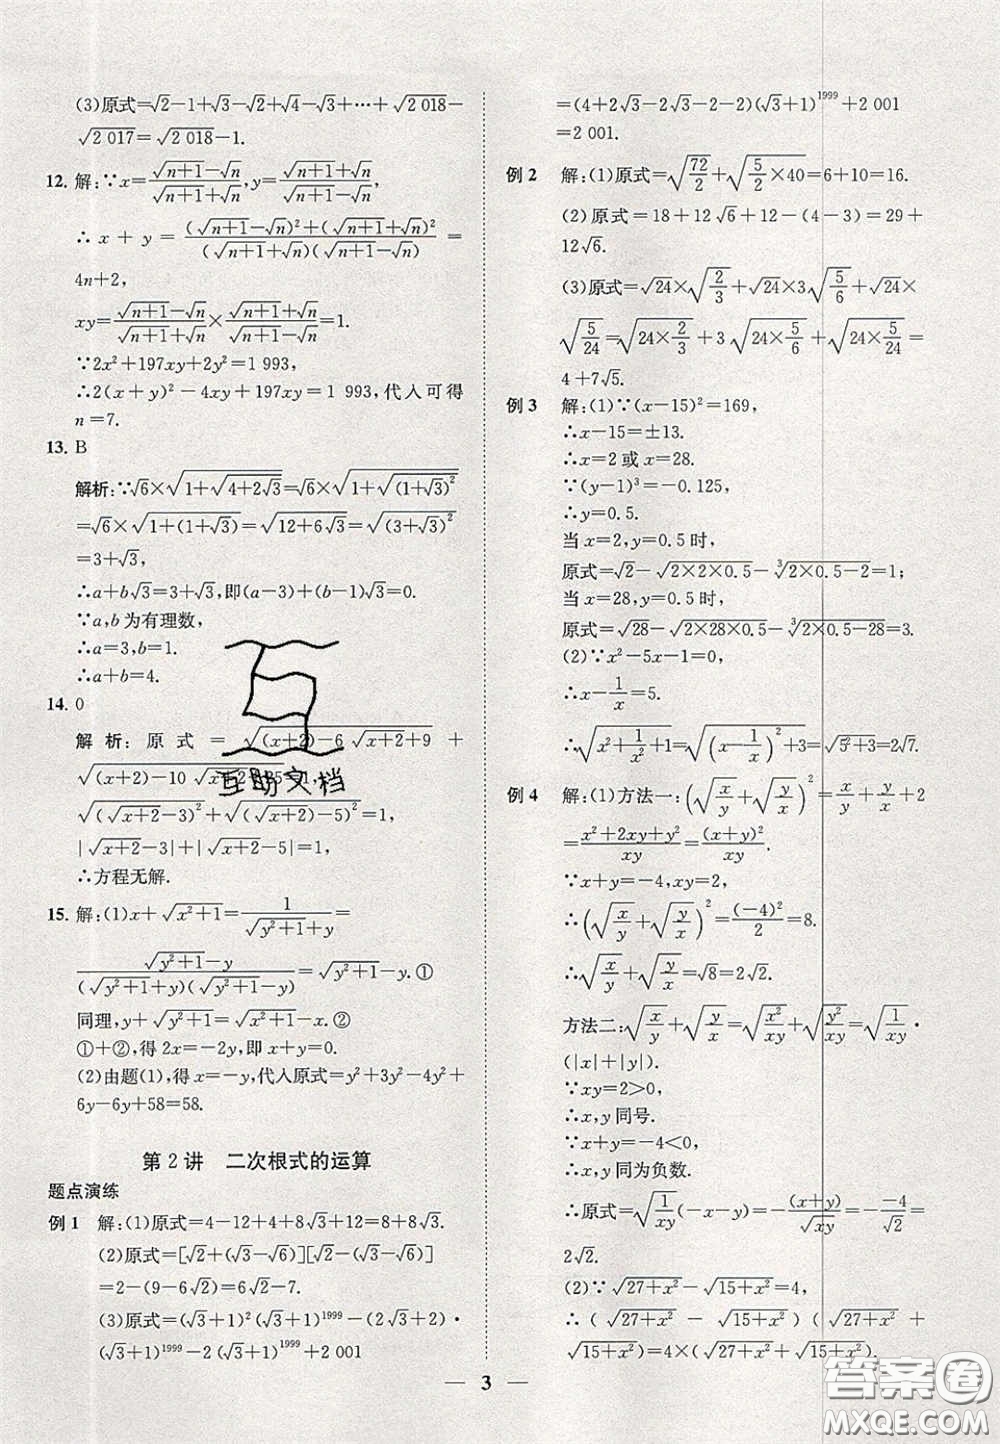 (3)原式=√2-1+√3-√2+√4-√3+…+√(2 018)-
√(2 017)=√(2 018)-1.
12. 解:∵x=(√(n+1)-√n)/(√(n+1)+√n),y=(√(n+1)+√n)/(√(n+1)-√n),
∴x+y=((√(n+1)-√n)²+(√(n+1)+√n)²)/((√(n+1)+√n)(√(n+1)-√n))=
4n+2,
xy=(√(n+1)-√n)/(√(n+1)+√n)×(√(n+1)+√n)/(√(n+1)-√n)=1.
∵2x²+197xy+2y²=1 993,
∴2(x+y)²-4xy+197xy=1 993,代入可得
n=7.
13. B
解析:∵√6×√(1+√(4+2√3))=√6×√(1+√((1+√3)²))
=√6×√(1+(1+√3))=√(12+6√3)=√((3+√3)²)
=3+√3,
∴a+b√3=3+√3,即(a-3)+(b-1)√3=0.
∵a,b为有理数,
∴a=3,b=1.
∴a+b=4.
14. 0
解析:原式=√((x+2)-6√(x+2)+9)+
√((x+2)-10√(x+2)+25)=1,
√((√(x+2)-3)²)+√((√(x+2)-5)²)=1,
|√(x+2)-3|+|√(x+2)-5|=1,
∴方程无解.
15. 解:(1)x+√(x²+1)=1/(√(y²+1)+y)=
(√(y²+1)-y)/((√(y²+1)+y)(√(y²+1)-y))=√(y²+1)-y.①
同理,y+√(y²+1)=√(x²+1)-x.②
①+②,得2x=-2y,即x=-y.
(2)由题(1),得x=-y,代入原式=y²+3y²-4y²+
6y-6y+58=58.
第2讲 二次根式的运算
题点演练
例1 解:(1)原式=4-12+4+8√3+12=8+8√3.
(2)原式=[√2+(√3-√6)][√2-(√3-√6)]
=2-(9-6√2)=6√2-7.
(3)原式=(√3+1)²(√3+1)¹⁹⁹⁹-2(√3+1)·
(√3+1)¹⁹⁹⁹-2(√3+1)¹⁹⁹⁹+2 001
=(4+2√3-2√3-2-2)(√3+1)¹⁹⁹⁹+2 001
=2 001.
例2 解:(1)原式=√(72/2)+√(5/2×40)=6+10=16.
(2)原式=18+12√6+12-(4-3)=29+
12√6.
(3)原式=√24×√(2/3)+√24×3√(5/6)+√24×
√(5/24)=√(24×2/3)+3√(24×5/6)+√(24×5/24)=
4+7√5.
例3 解:(1)∵(x-15)²=169,
∴x-15=±13.
∴x=2或x=28.
∵(y-1)³=-0.125,
∴y=0.5.
当x=2,y=0.5时,
原式=√2-√(2×2×0.5)-∛(2×0.5-2)=1;
当x=28,y=0.5时,
原式=√28-√(2×28×0.5)-∛(2×0.5-28)=3.
(2)∵x²-5x-1=0,
∴x-1/x=5.
∴√(x²+1/x²+1)=√((x-1/x)²+3)=√(5²+3)=2√7.
例4 解:(1)方法一:(√(x/y)+√(y/x))²=x/y+y/x+2
=(x²+2xy+y²)/xy=(x+y)²/xy.
∵x+y=-4,xy=2,
∴(√(x/y)+√(y/x))²=(-4)²/2=8.
∴√(x/y)+√(y/x)=√8=2√2.
方法二:√(x/y)+√(y/x)=√(x²/xy)+√(y²/xy)=√(1/xy)·
(|x|+|y|).
∵xy=2>0,
∴x,y同号.
∵x+y=-4<0,
∴x,y同为负数.
∴原式=√(1/xy)(-x-y)=-(x+y)/√(xy)=-(-4)/√2=
2√2.
(2)∵√(27+x²)-√(15+x²)=4,
∴(√(27+x²)-√(15+x²))(√(27+x²)+
√(15+x²))=4×(√(27+x²)+√(15+x²)),
3
互助文档
答案圈
MXQE.COM